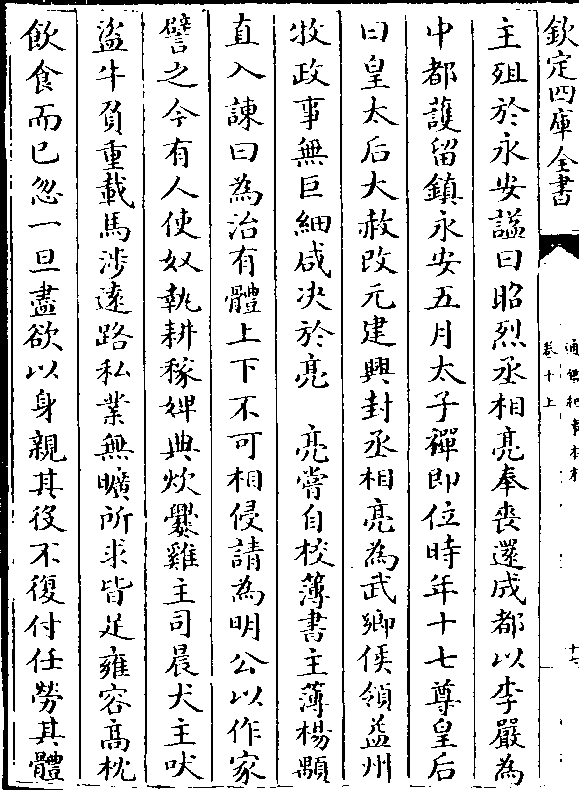 欽定四庫全書
通鑑紀事本末
卷十上
主殂於永安諡曰昭烈丞相亮奉喪還成都以李嚴為
中都護留鎮永安五月太子禪即位時年十七尊皇后
曰皇太后大赦改元建興封丞相亮為武鄉侯領益州
牧政事無巨細咸决於亮 亮嘗自校簿書主薄楊顒
直入諫曰為治有體上下不可相侵請為明公以作家
譬之今有人使奴執耕稼婢典炊爨雞主司晨犬主吠
盜牛負重載馬涉遠路私業無曠所求皆足雍容高枕
飲食而已忽一旦盡欲以身親其役不復付任勞其體